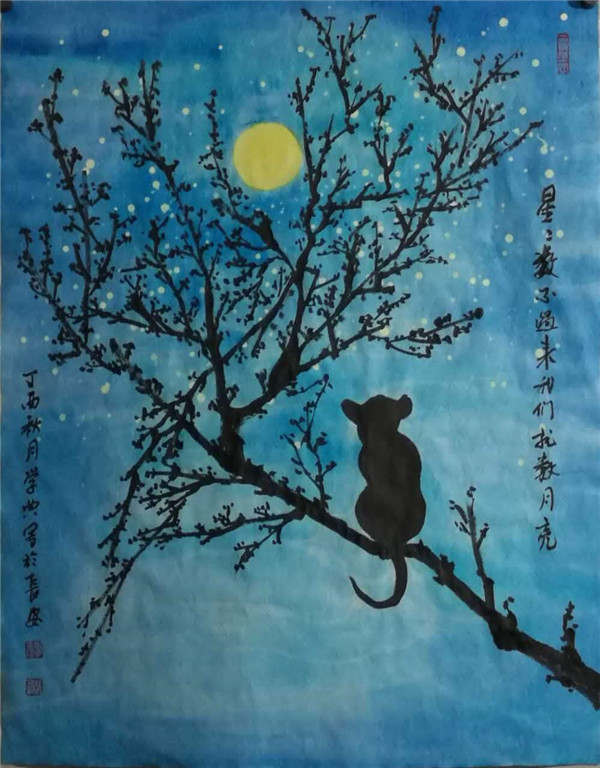 星星数不过来我们就数月亮
丁酉秋月学典写于长安